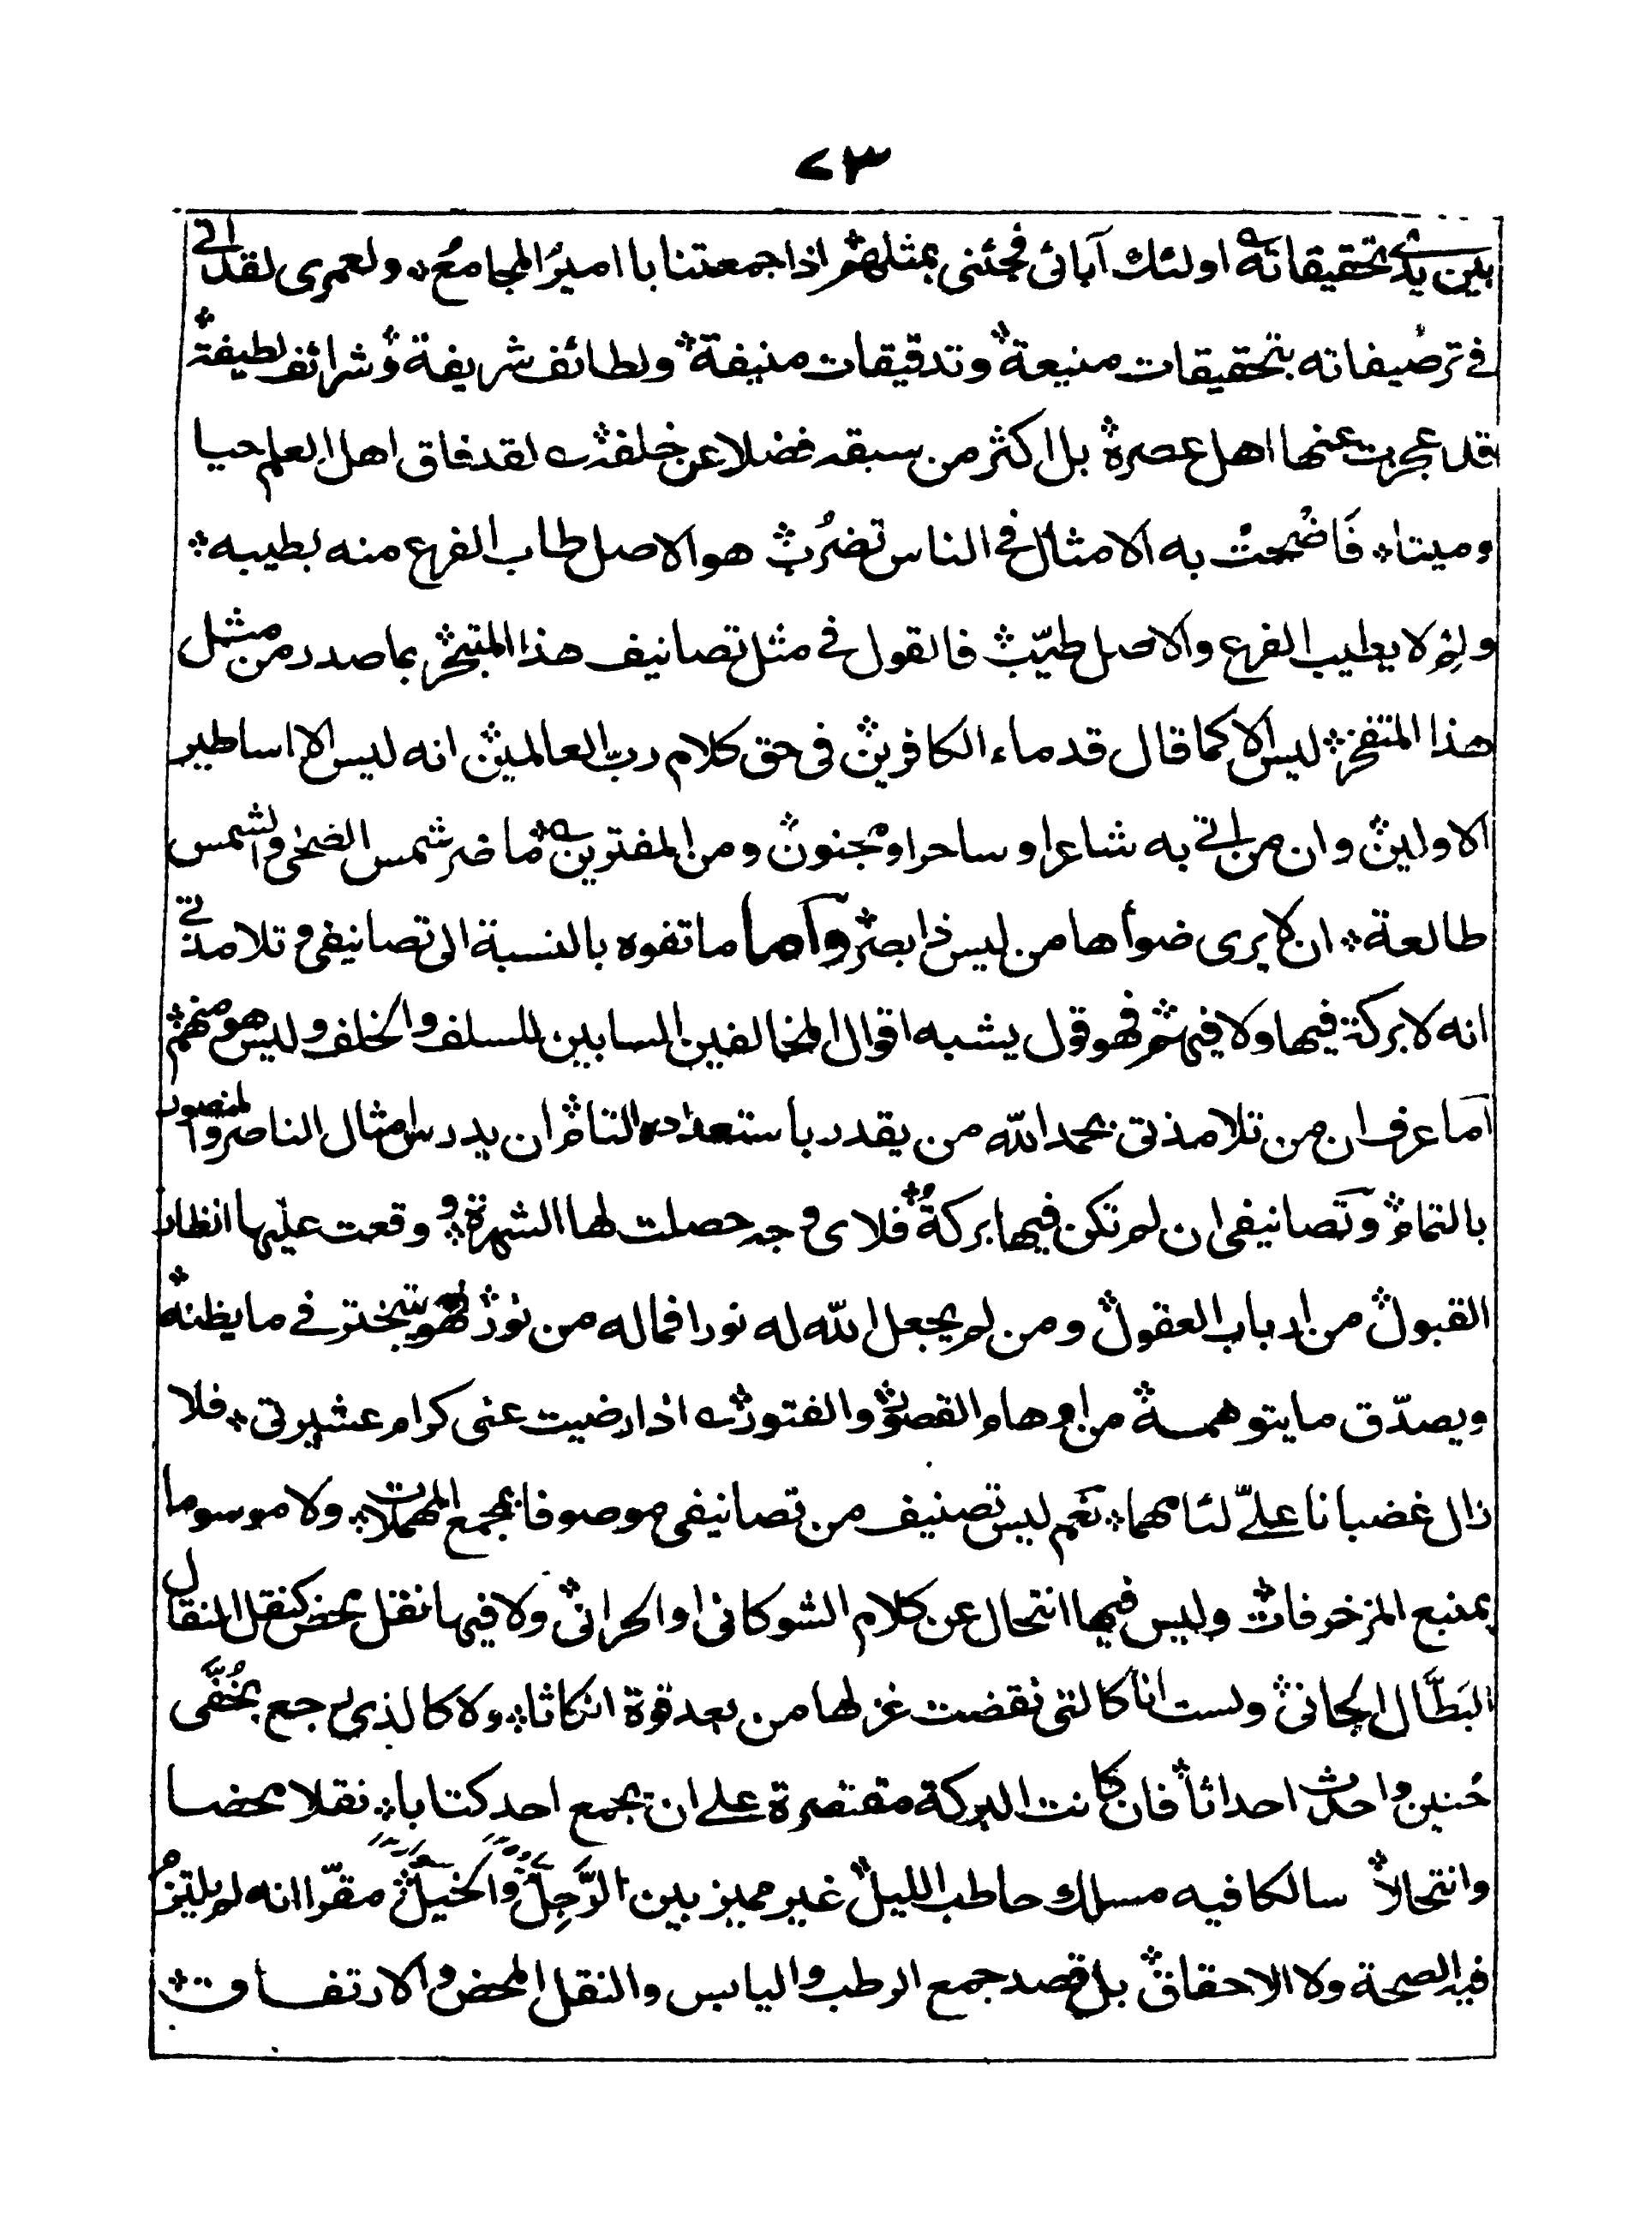 ٧٣
بين يدي تحقيقاته اولئك آبائى فجئنى بمثلهم اذا جمعتنا يا امير المجامع ۞ ولعمرى لقد اتى
فى ترصيفاته بتحقيقات منيعة ۞ وتدقيقات منيفة ۞ ولطائف شريفة ۞ وشرائف لطيفة ۞
قد عجزت عنها اهل عصره ۞ بل اكثر من سبقه فضلا عن خلفه ۞ لقد فاق اهل العلم حيا
وميتا ۞ فَاضحتْ به الامثال فى الناس تضرُب ۞ هو الاصل طاب الفرع منه بطيبه ۞
ولِمْ لا يطيب الفرع والاصل طيّب ۞ فالقول فى مثل تصانيف هذا المتبحر ۞ بما صدر من مثل
هذا المتفخر ۞ ليس الا كما قال قدماء الكافرين ۞ فى حق كلام ربّ العالمين ۞ انه ليس الا اساطير
الاولين ۞ وان من اتى به شاعر او ساحر او مجنون ۞ ومن المفترين ۞ ما ضر شمس الضحى والشمس
طالعة ۞ ان لا يرى ضوأها من ليس ذا بصر ۞ وآما ما تفوه بالنسبة الى تصانيفى وتلامذتى
انه لا بركة فيها ولا فيهم ۞ فهو قول يشبه اقوال المخالفين السابين للسلف والخلف وليس هو منهم ۞
اما عرف ان من تلامذتى بحمد الله من يقدر باستعداده التام ۞ ان يدرس امثال الناصر والمنصور
بالتمام ۞ وتصانيفى ان لم تكن فيها بركةٌ ۞ فلاى وجه حصلت لها الشهرة ۞ و وقعت عليها انظار
القبول ۞ من ارباب العقول ۞ ومن لم يجعل الله له نورا فماله من نور ۞ فهو يتبختر فى ما يظنه ۞
ويصدّق ما يتوهمه ۞ من اوهام القصور ۞ والفتور ۞ اذا رضيت عنى كرام عشيرتى ۞ فلا
زال غضبانا علىّ لئامها ۞ نعم ليس تصنيف من تصانيفى موصوفا بمجمع المهملات ۞ ولا موسوما
بمنبع المزخرفات ۞ وليس فيها انتحال عن كلام الشوكانى او الحرانى ۞ ولا فيها نقل محض كنقل المنقال
البَطَّال الجانى ۞ ولست انا كالتى نقضت غزلها من بعد قوة انكاثا ۞ ولا كالذى رجع بخُفَّى
حُنين واحدث احداثا ۞ فان كانت البركة مقتصرة على ان يجمع احد كتابا ۞ نقلا محضا
وانتحالا ۞ سالكا فيه مسلك حاطب الليل ۞ غير مميز بين الرَّجِل ۞ والخيل ۞ مقرّا انه لم يلتزم
فيه الصحة ولا الاحقاق ۞ بل قصد جمع الرطب واليابس والنقل المحض والارتفاق ۞